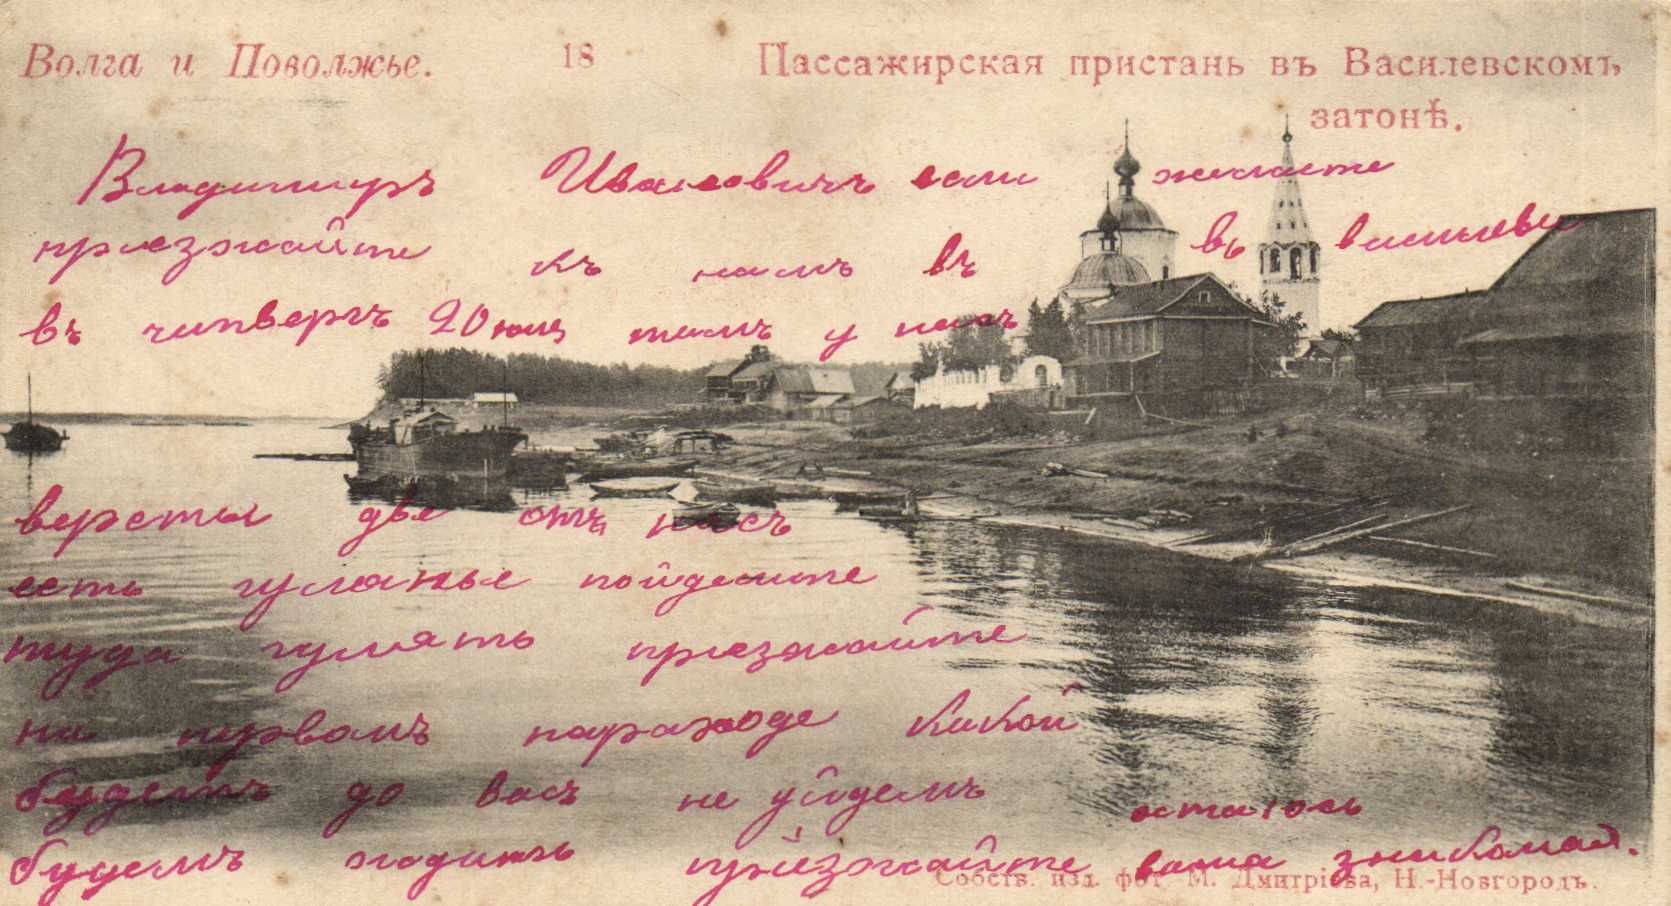 Волга и Поволжье. 18 Пассажирская пристань въ Василевскомъ
затонѣ.
Владимиръ Ивановичъ если желаите
приезжайте къ намъ въ въ василеви
въ читвергъ 20 юля тамъ у насъ
версты две отъ насъ
есть гулянье пойдемте
туда гулять приезжайте
на первомъ параходе какой
будетъ до васъ не уйдемъ
будемъ ждать приезжайте остаюсь
ваша знакомая.
Собств. изд. фот. М. Дмитрiева, Н.-Новгородъ.